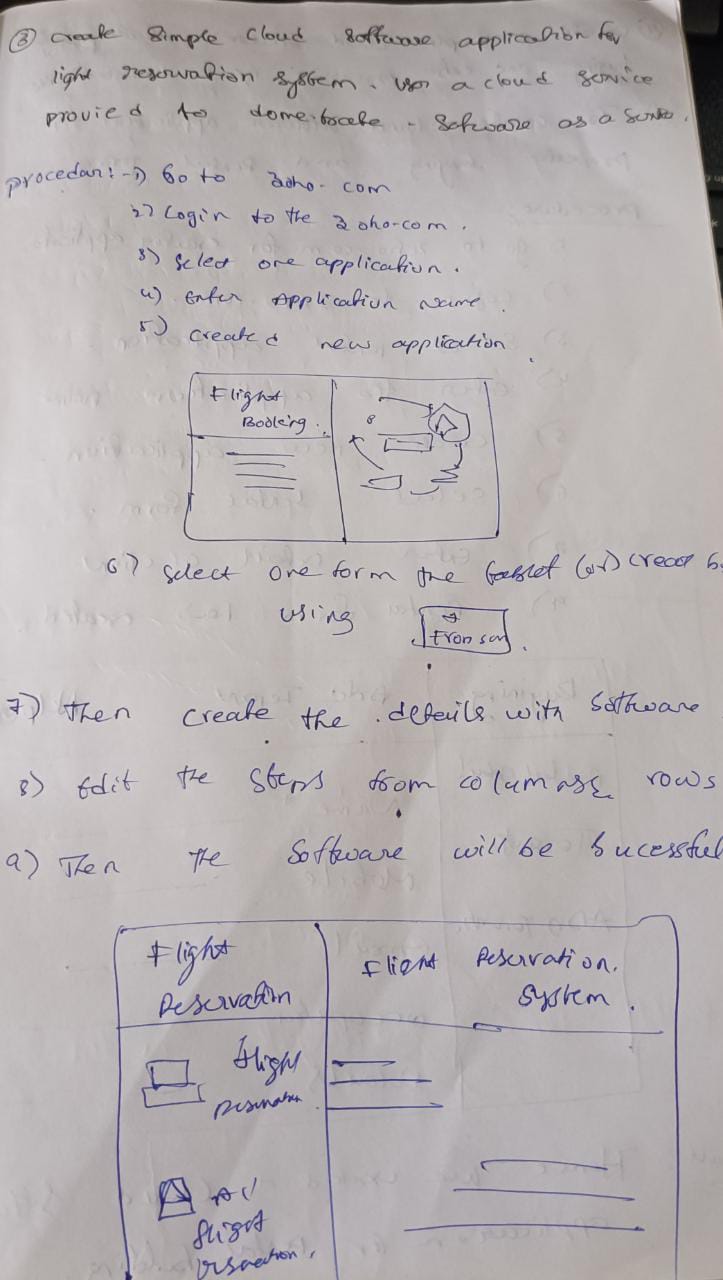 ③ create Simple Cloud Software application for
light reservation system. Use a cloud service
provied to - Software as a
procedar:- 1) Go to Zoho.com
2) Login to the Zoho.com.
3) Select one application.
4) Enter Application Name.
5) created new application.
Flight
Booking.
6) Select one form the (or) creat b
using
7) Then create the details with software
8) Edit the steps from rows
9) Then the Software will be Sucessful
Flight
Reservation
Flight Reservation.
System.
flight
All
flight